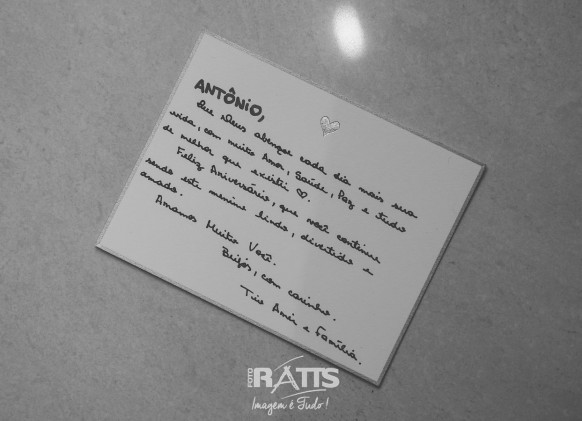 ANTÔNIO,
Que Deus abençoe cada dia mais sua
vida, com muito Amor, Saúde, Paz e tudo
de melhor que existir ♡.
Feliz Aniversário, que você continue
sendo este menino lindo, divertido e
amado.
Amamos Muito Você.
Beijos, com carinho.
e Família.
FOTO RATTS
Imagem é Tudo!